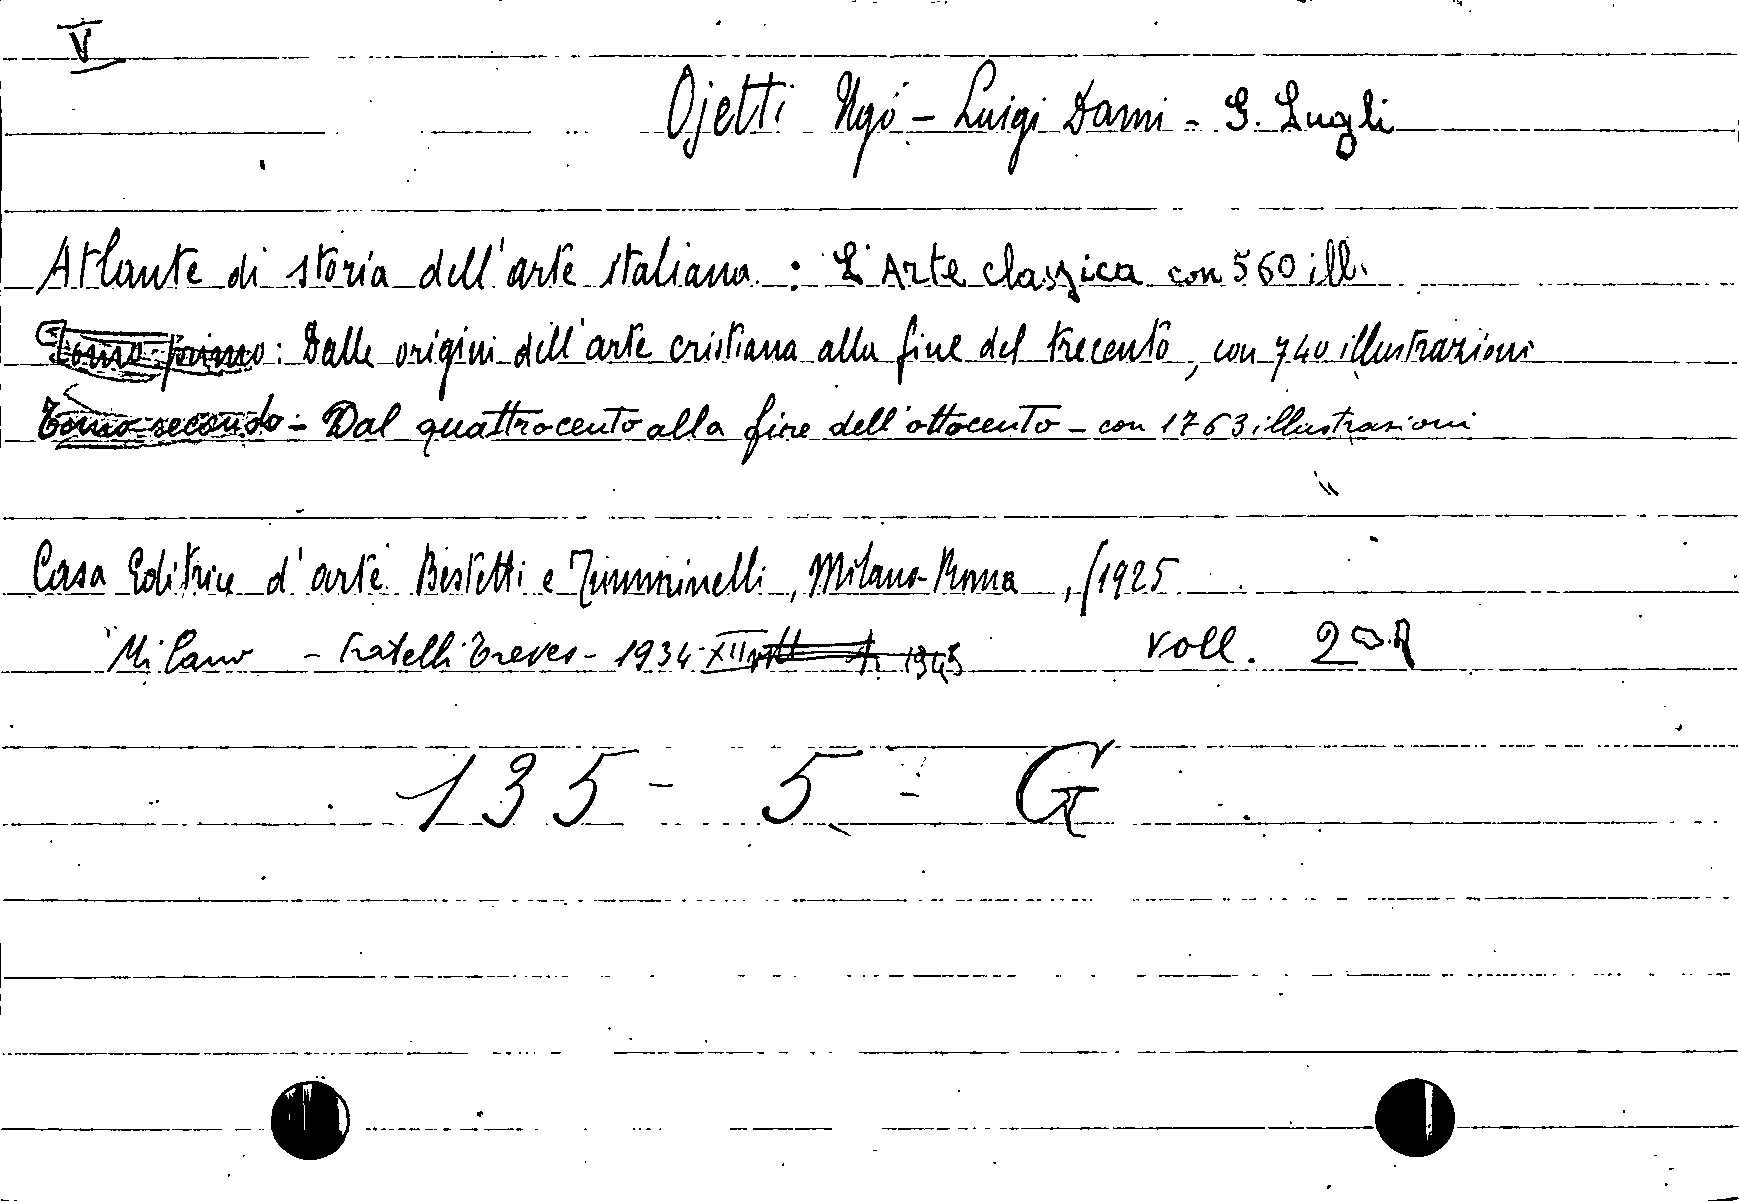 V
Ojetti Ugo - Luigi Dami - G. Lugli
Atlante di storia dell'arte italiana : L'Arte classica con 560 ill.
Tomo primo : Dalle origini dell'arte cristiana alla fine del trecento, con 740 illustrazioni
Tomo secondo - Dal quattrocento alla fine dell'ottocento - con 1763 illustrazioni
"
Casa Editrice d'arte Bestetti e Tumminelli, Milano-Roma , / 1925
Milano - Fratelli Treves - 1934 XII 1945 voll. 2
135 - 5 - G